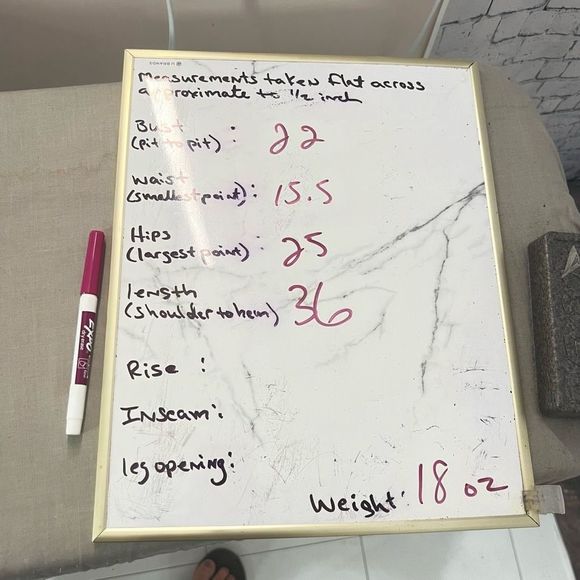 U BRANDS
Measurements taken flat across
approximate to 1/2 inch
Bust
(pit to pit) : 22
waist
(smallest point) : 15.5
Hips
(largest point) : 25
length
(shoulder to hem) 36
Rise :
Inseam:
leg opening:
Weight: 18 oz
EXPO